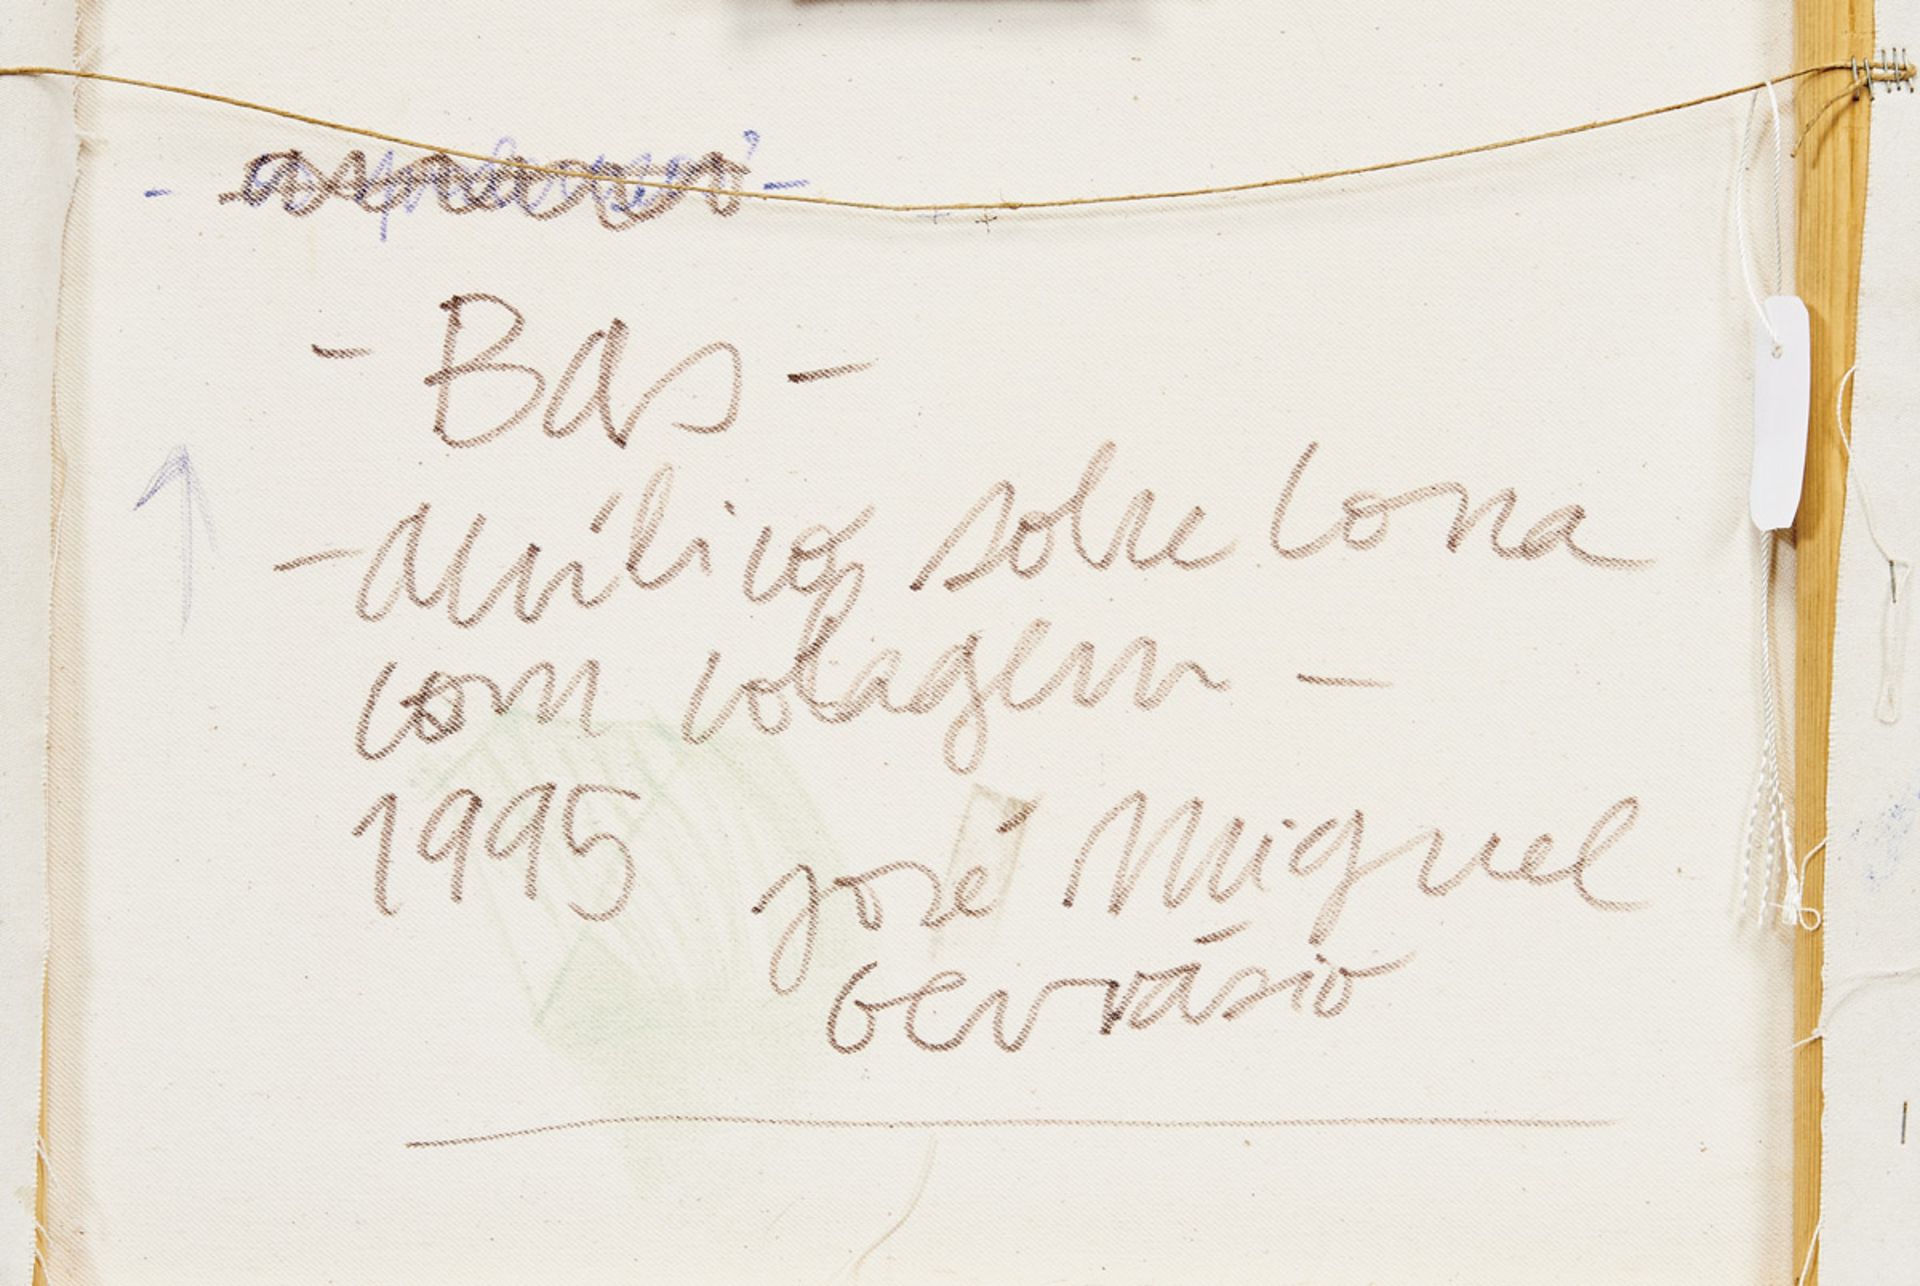 - Bas -
- acrílico sobre lona
com colagem -
1995
José Miguel
Gervásio